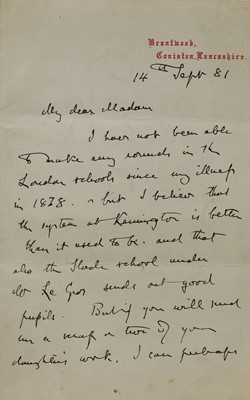 Brantwood,
Coniston, Lancashire.
14th Sept 81
My dear Madam
I have not been able
to make any rounds in the
London schools since my illness
in 1878. but I believe that
the system at Kensington is better
than it used to be. and that
also the Slade school under
Le Gros sends out good
pupils. But if you will send
me a scrap or two of your
daughter's work. I can perhaps